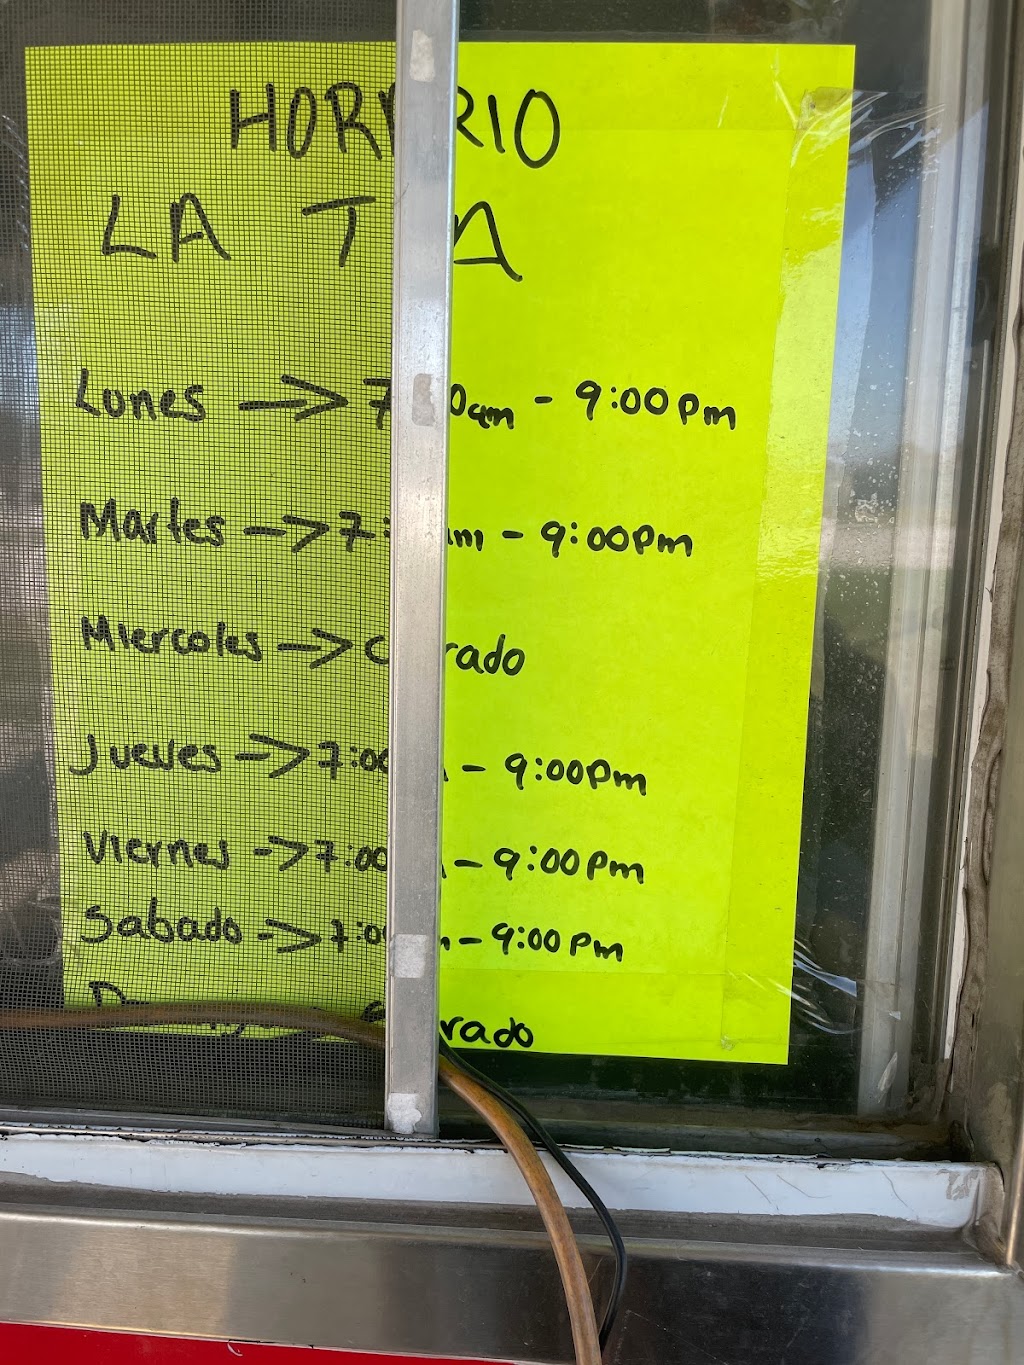 HORARIO
LA T
Lunes → 7:00am - 9:00pm
Martes → 7: am - 9:00pm
Miercoles → Cerrado
Jueves → 7:00am - 9:00pm
Viernes → 7:00am - 9:00pm
Sabado → 7:00am - 9:00pm
Cerrado